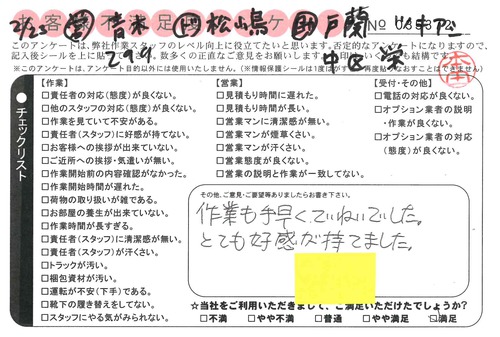 2/23 営 青木 ド 松嶋 助 戸蘭 リ.キアニ
お客様不満足度アンケート No
299
中区 栄
本
このアンケートは、弊社作業スタッフのレベル向上に役立てたいと思います。否定的なアンケートになりますので、
記入後シールを上に貼って
数多くの正直なご意見をお願いします。
結構です。
※このアンケートは、アンケート目的以外には使用いたしません。(※情報保護シールは1度はがすと再度貼りなおすことはできません)
チェックリスト
【作業】
□責任者の対応(態度)が良くない。
□他のスタッフの対応(態度)が良くない。
□作業を見ていて不安がある。
□責任者(スタッフ)に好感が持てない。
□お客様への挨拶が出来ていない。
□ご近所への挨拶・気遣いが無い。
□作業開始前の内容確認がなかった。
□作業開始時間が遅れた。
□荷物の取り扱いが雑である。
□お部屋の養生が出来ていない。
□作業時間が長すぎる。
□責任者(スタッフ)に清潔感が無い。
□責任者(スタッフ)が汗くさい。
□トラックが汚い。
□梱包資材が汚い。
□運転が不安(下手)である。
□靴下の履き替えをしてない。
□スタッフにやる気がみられない。
【営業】
□見積もり時間に遅れた。
□見積もり時間が長い。
□営業マンに清潔感が無い。
□営業マンが煙草くさい。
□営業マンが汗くさい。
□営業態度が良くない。
□営業の説明と作業が一致してない。
【受付・その他】
□電話の対応が良くない。
□オプション業者の説明
・作業が良くない。
□オプション業者の対応
(態度)が良くない。
その他、ご意見・ご要望等ありましたらお書き下さい。
作業も手早く、ていねいでした。
とても好感が持てました。
☆当社をご利用いただきまして、ご満足いただけたでしょうか?
□不満 □やや不満 □普通 □やや満足 ☑満足